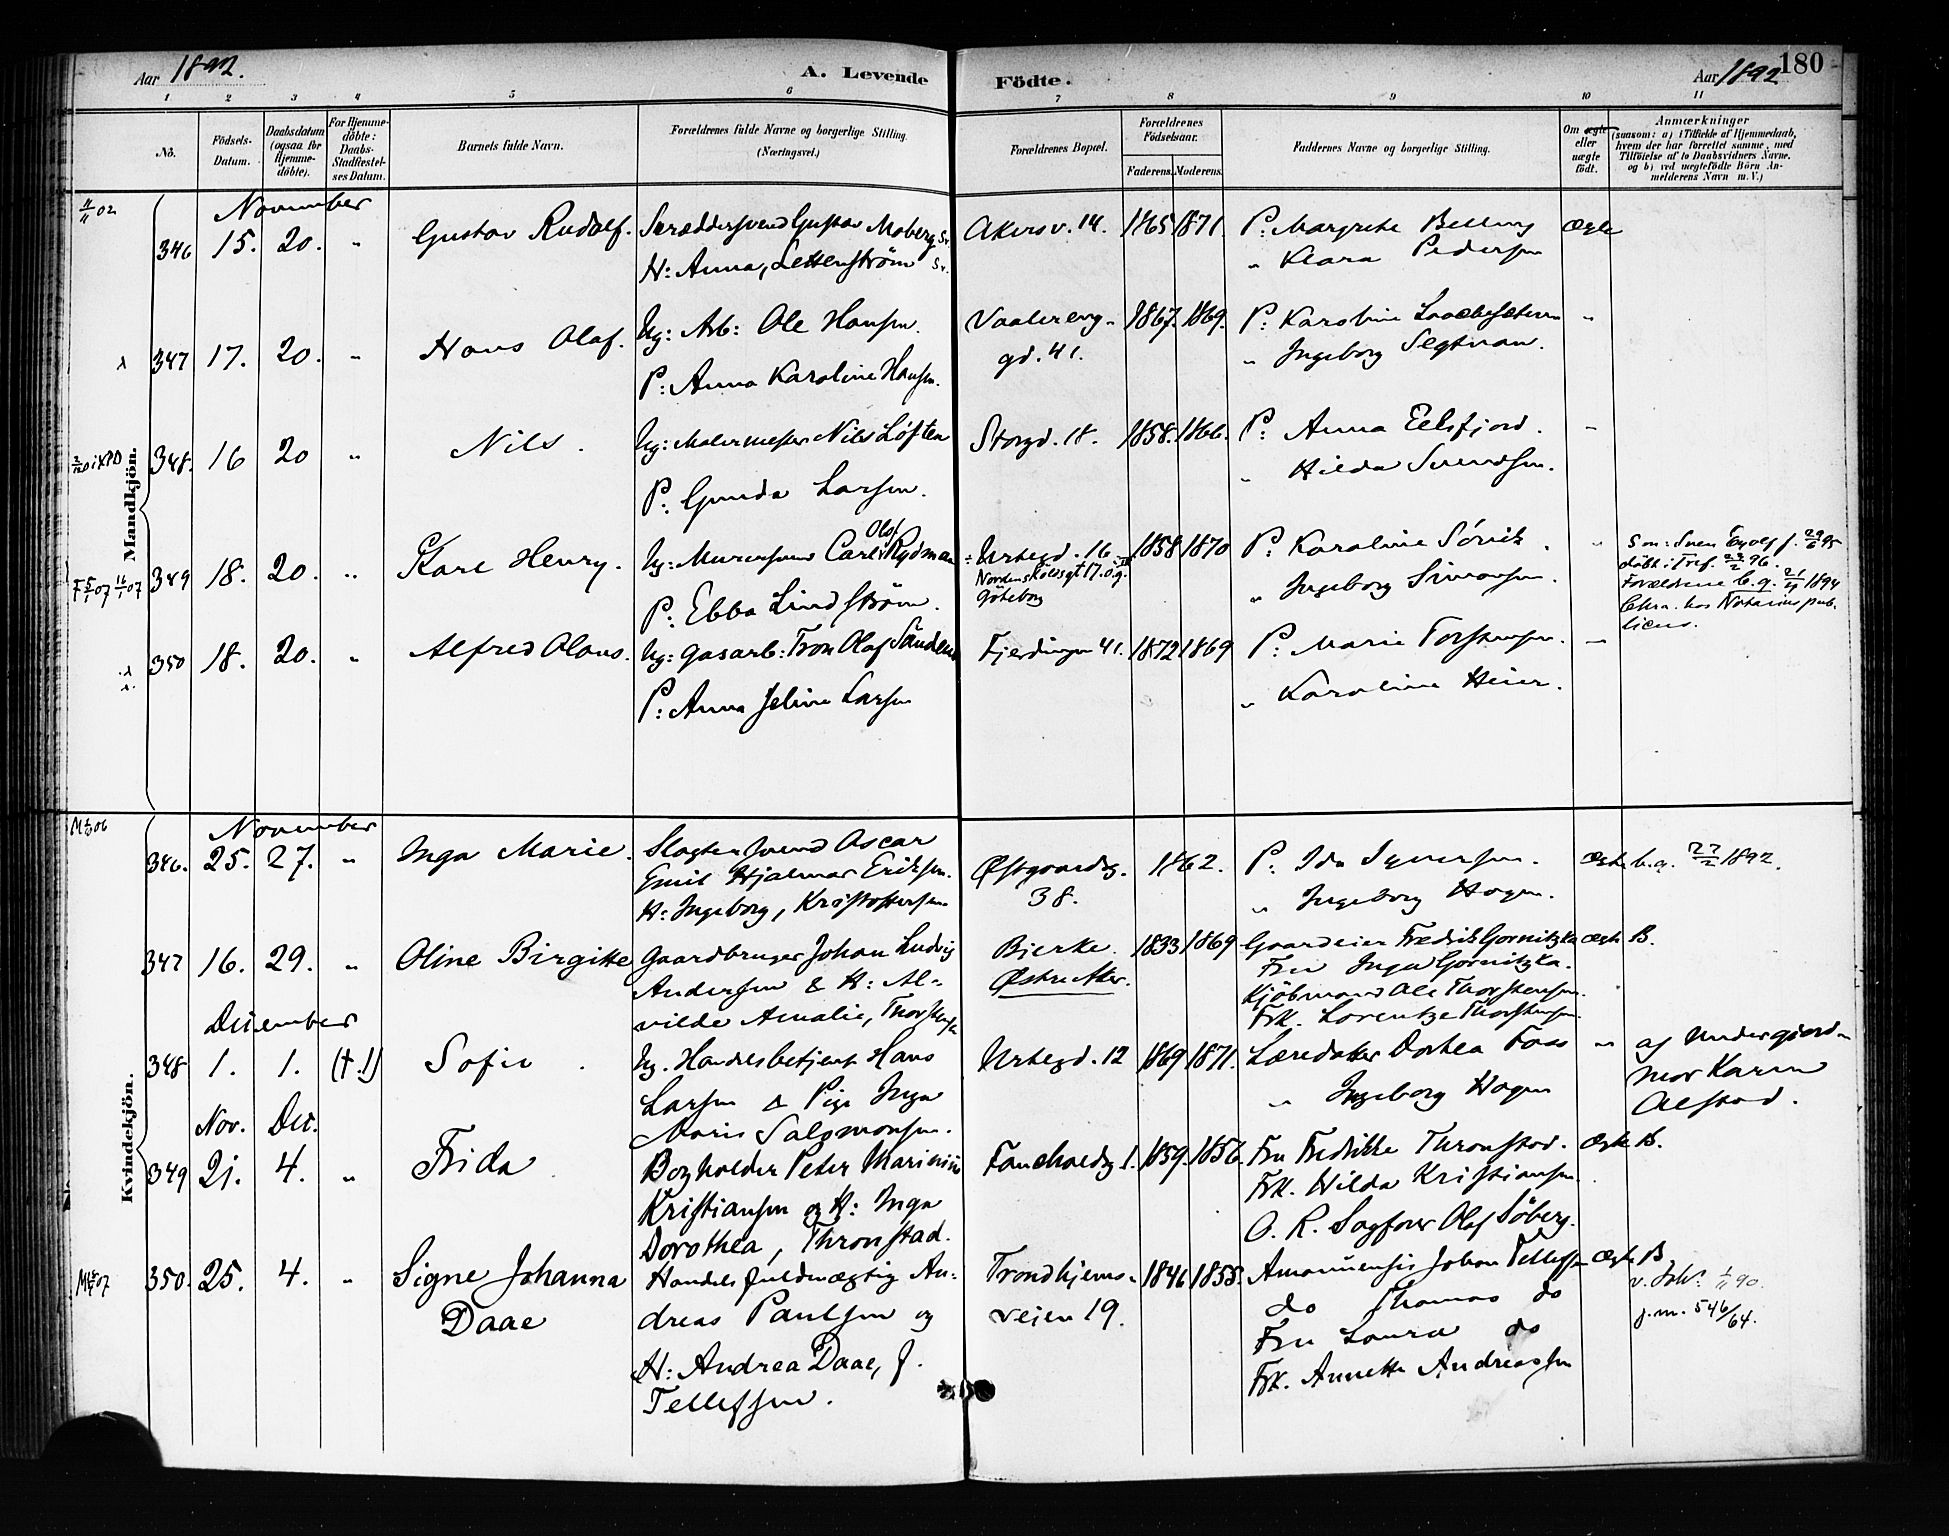 Aar 1892.
A. Levende Födte.
Aar 1892
180
1 2 3 4 5 6 7 8 9 10 11
Nô.
Födsels-Datum.
Daabsdatum (ogsaa for Hjemme-döbte).
For Hjemme-döbte: Daabs-Stadfæstel-ses Datum.
Barnets fulde Navn.
Forældrenes fulde Navne og borgerlige Stilling. (Næringsvei.)
Forældrenes Bopæl.
Forældrenes Födselsaar.
Faderens. Moderens.
Faddernes Navne og borgerlige Stilling.
Om ægte eller uægte födt.
Anmærkninger
(saasom: a) i Tilfælde af Hjemmedaab,
hvem der har forrettet samme, med
Tilföielse af to Daabsvidners Navne.
og b) ved uægtefödte Börn An-
melderens Navn m. V.)
Mandkjön.
11/11 02
November
346 15. 20. " Gustav Rudolf. Skræddersvend Gustav Moberg Sv.
H: Anna, Settenström Sv.
Akersv. 14. 1865 1871. P. Margrethe Bellung Ægte
" Klara Pedersen
347 17. 20. " Hans Olaf. Ug: Arb: Ole Hansen.
P: Anna Karoline Hansen.
Vaalereng-
gd. 41.
1867. 1869. P: Karoline "
" Ingeborg Segtnan.
348. 16 20 " Nils. Ug: Malermester Nils Løften
P. Gunda Larsen.
Storgd. 18. 1858. 1866. P: Anna Eelsfjord. "
" Hilda Svendsen.
F 5/1 07 16/1 07
349 18. 20. " Kare Henry. Ug: Murersvend Carl Olof Rydman
P. Ebba Lindström.
Urtegd. 16
Nordenskölsgt 17. ö.g.
Göteborg
1858 1870 P. Karoline Sörvik. "
" Ingeborg Simonsen.
Sön: Sven Eyolf f. 29/6 95
döbt i Tref. 23/2 96.
Forældrene b. g. 21/4 1894
Chra. hos Notarius pub-
licus.
350 18. 20. " Alfred Olaus. Ug: gasarb: Tron Olaf Sandem
P: Anna Jeline Larsen
Fjerdingen 41. 1872 1869 P. Marie Torstensen. "
" Karoline Heier.
Kvindekjön.
November
346. 25. 27. " Inga Marie. Slagtersvend Oscar
Emil Hjalmar Eriksen.
H: Ingeborg, Kristoffersen.
Østgaardsg.
38.
1862. P. Ida Syversen. Ægte b.g. 27/2 1892.
" Ingeborg Hagen.
347 16. 29. " Oline Birgitte Gaardbruger Johan Ludvig
Andersen & H: Al-
vilde Amalie, Thorstensen
Bjerke.
Østre Aker.
1833 1869 Gaardeier Fredrik Gornitzka Ægte B.
Fru Inga Gornitzka.
Kjöbmand Ole Thorstensen.
Frk. Lorentze Thorstensen.
December
348 1. 1. († 1/) Sofie. Ug. Handelsbetjent Hans
Larsen & Pige Inga
Marie Salomonsen.
Urtegd. 12 1869 1871. Læredatter Dorthea Foss " af Undergjord-
" Ingeborg Hagen
mor Karen
Alstad.
Nov. Dec.
349 21. 4. " Frida Bogholder Peter Marinius
Kristiansen og H: Inga
Dorothea, Thronstad.
Fauchaldsg 1. 1859. 1856. Fru Fredrikke Thronstad. Ægte B.
Frk. Hilda Kristiansen.
O. R. Sagfører Olaf Söberg.
350. 25. 4. " Signe Johanna
Daae
Handelsfuldmægtig An-
dreas Paulsen og
H: Andrea Daae, f.
Tellefsen.
Trondhjems-
veien 19.
1846 1855. Amanuensis Johan Tellefsen Ægte B
do Thomas do
Fru Laura do
Frk. Annette Andreassen
v. Joh. 1/11 90.
j.m. 546/64.